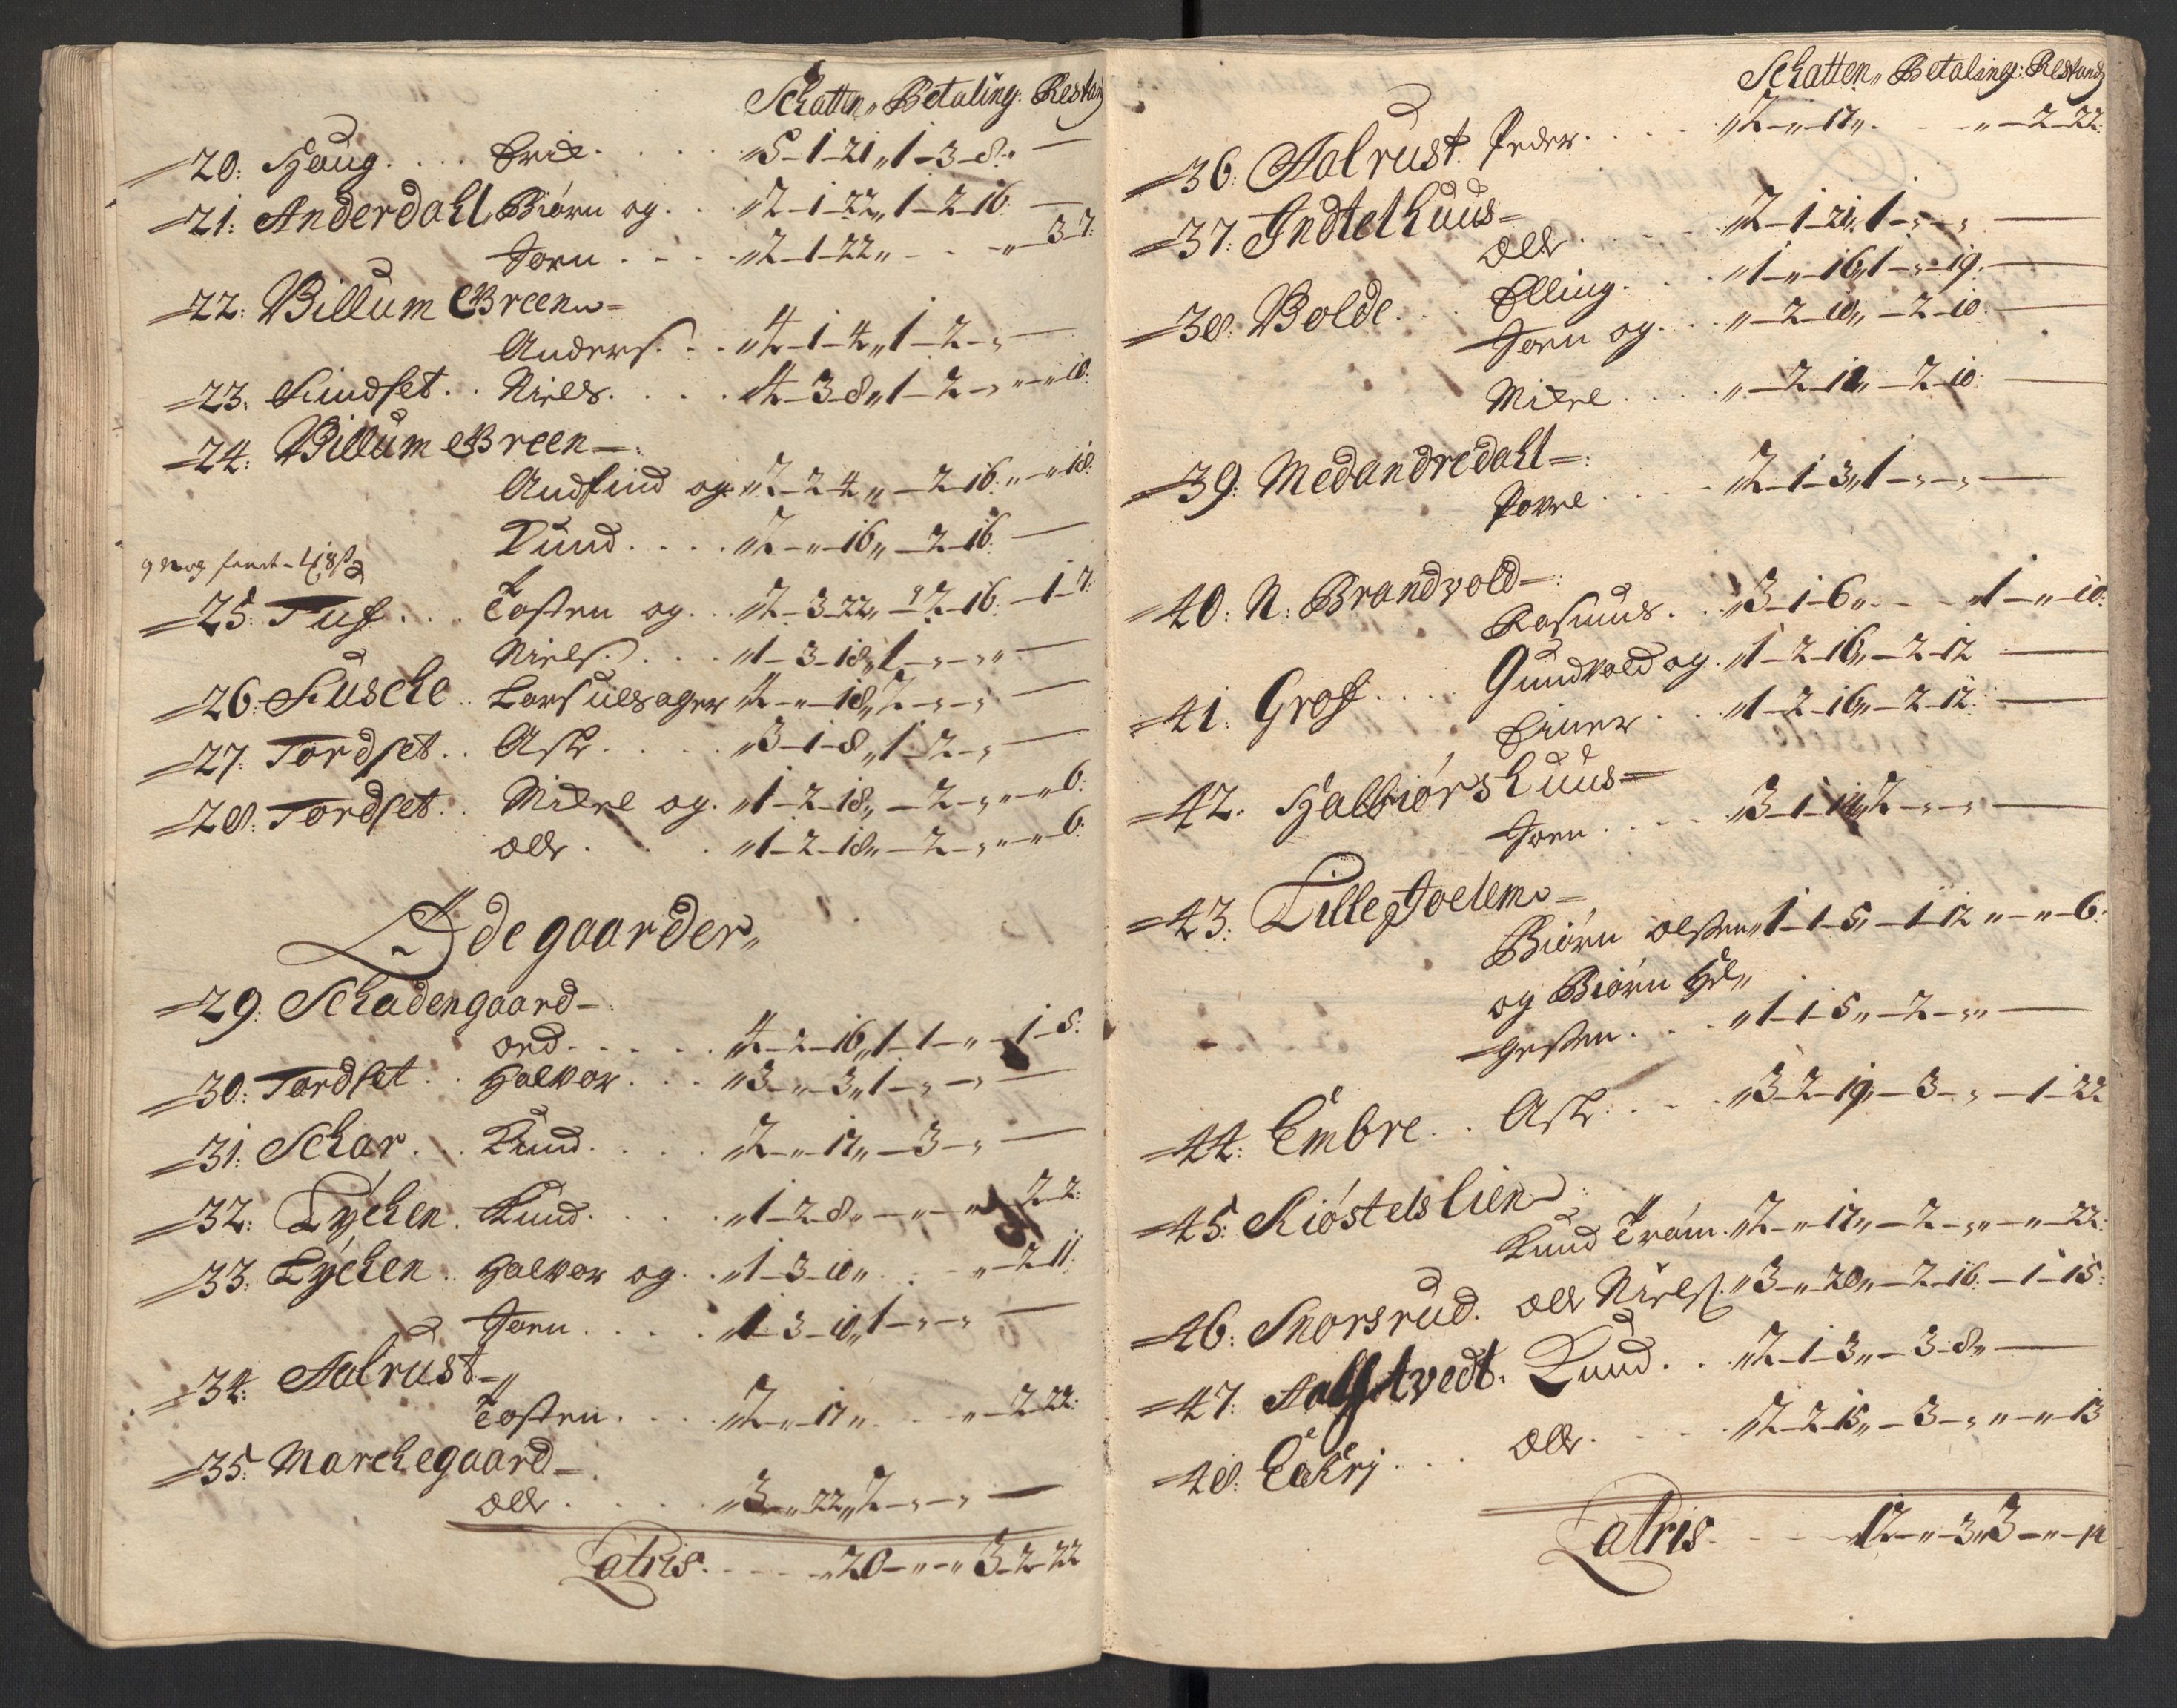 Schatten „ Betaling: Restand
20: Haug . . . . Erik . . . . „5-1-21 „1-3-8: —
21: Anderdahl Biörn og . . „2-1-22 „1-2-16: —
Jorn . . . . „2-1-22 „ - - „ - 3-7:
22: Billum Breen =
Anders . . . „4-1-4 „1-2- „ —
23: Kindset . . Niels . . . . „4-3-8 „1-2- „ „-„-10:
24: Billum Breen =:
Andfind og „2-2-4 „ -2-16: „-„-18:
Knud . . . . „2-„-16 „ -2-16: —
25: Tuf . . . Tosten og . . „2-3-22 „ -2-16: -1-7:
Niels . . . . „1-3-18 „1-„-„ —
26: Kusche . . Lars „2-„-18 „2-„-„ —
27: Tordset . . Asle . . . . „3-1-8 „1-2-„ —
28: Tordset . . Mikel og . „1-2-18 „ -2-„ „-„-6:
Olle . . . . „1-2-18 „ -2-„ „-„-6:
Ödegaarder „
29: Schadengaard =
Ond . . . . „4-2-16 „1-1-„ -1-5:
30: Tordset . . Halvor . . . „3-„-3 „1-„-„ —
31: Schar . . . Knud . . . . „2-„-17 „ -3-„ —
32: Lÿchen . Knud . . . . „1-2-8 „ - „ - „ 2-2:
33: Lÿchen . . Halvor og . . „1-3-10 „ . . „ -2-11:
Jorn . . . . „1-3-10 „1-„-„ —
34: Aalrust = „
Tosten . . . . „2-„-17 „ . . „ -2-22:
35: Marchegaard =
Olle . . . . „3-„-22 „2-„-„ —
Latris . . . . „20-„-„ 3-2-22
Schatten „ Betaling: Restand
36: Aalrust . Peder . . . . „2-„-17 „ . . „ -2-22:
37: Indtelhuus =
Olle . . . . „2-1-21 „1-„-„ —
38: Bolde . . . Elling . . . „1-„-16 „1-„-19: —
Jorn og . . „-2-10 „ -2-10: —
Mikel . . . „-2-10 „ -2-10: —
39: Medandredahl =:
Povel . . . . „2-1-3 „1-„-„ —
40: N: Brandvold =:
Rasmus . . „3-1-6 „ . . „1-„-10:
41: Graf . . . . Gundvold og . „1-2-16 „ -2-12 —
Einer . . „1-2-16 „ -2-12: —
42: Halbiörshuus =
Jorn . . . . „3-1-14 „2-„-„ —
43: Lille Joelem =
Biörn Olsten „1-1-5 „ -1-12 „-„-6:
og Biörn Hel „
gesten . . . „1-1-5 „ -2-„ —
44: Embre . . Asle . . . . „3-2-19 „ -3-„ -1-22
45: Kiöstelslien
Knud Tram . „2-„-17 „ -2-„ „-„-22:
46: Snorsrud . Olle Niels . „3-„-20 „ -2-16: -1-15:
47: Aalstvedt . Knud . . „2-1-3 „ -3-8 „ —
48: Eakri . . . Olle . . . . „2-2-15 „ -3-„ „-„-13
Latris . . . . 12-„-3 „3-„-14